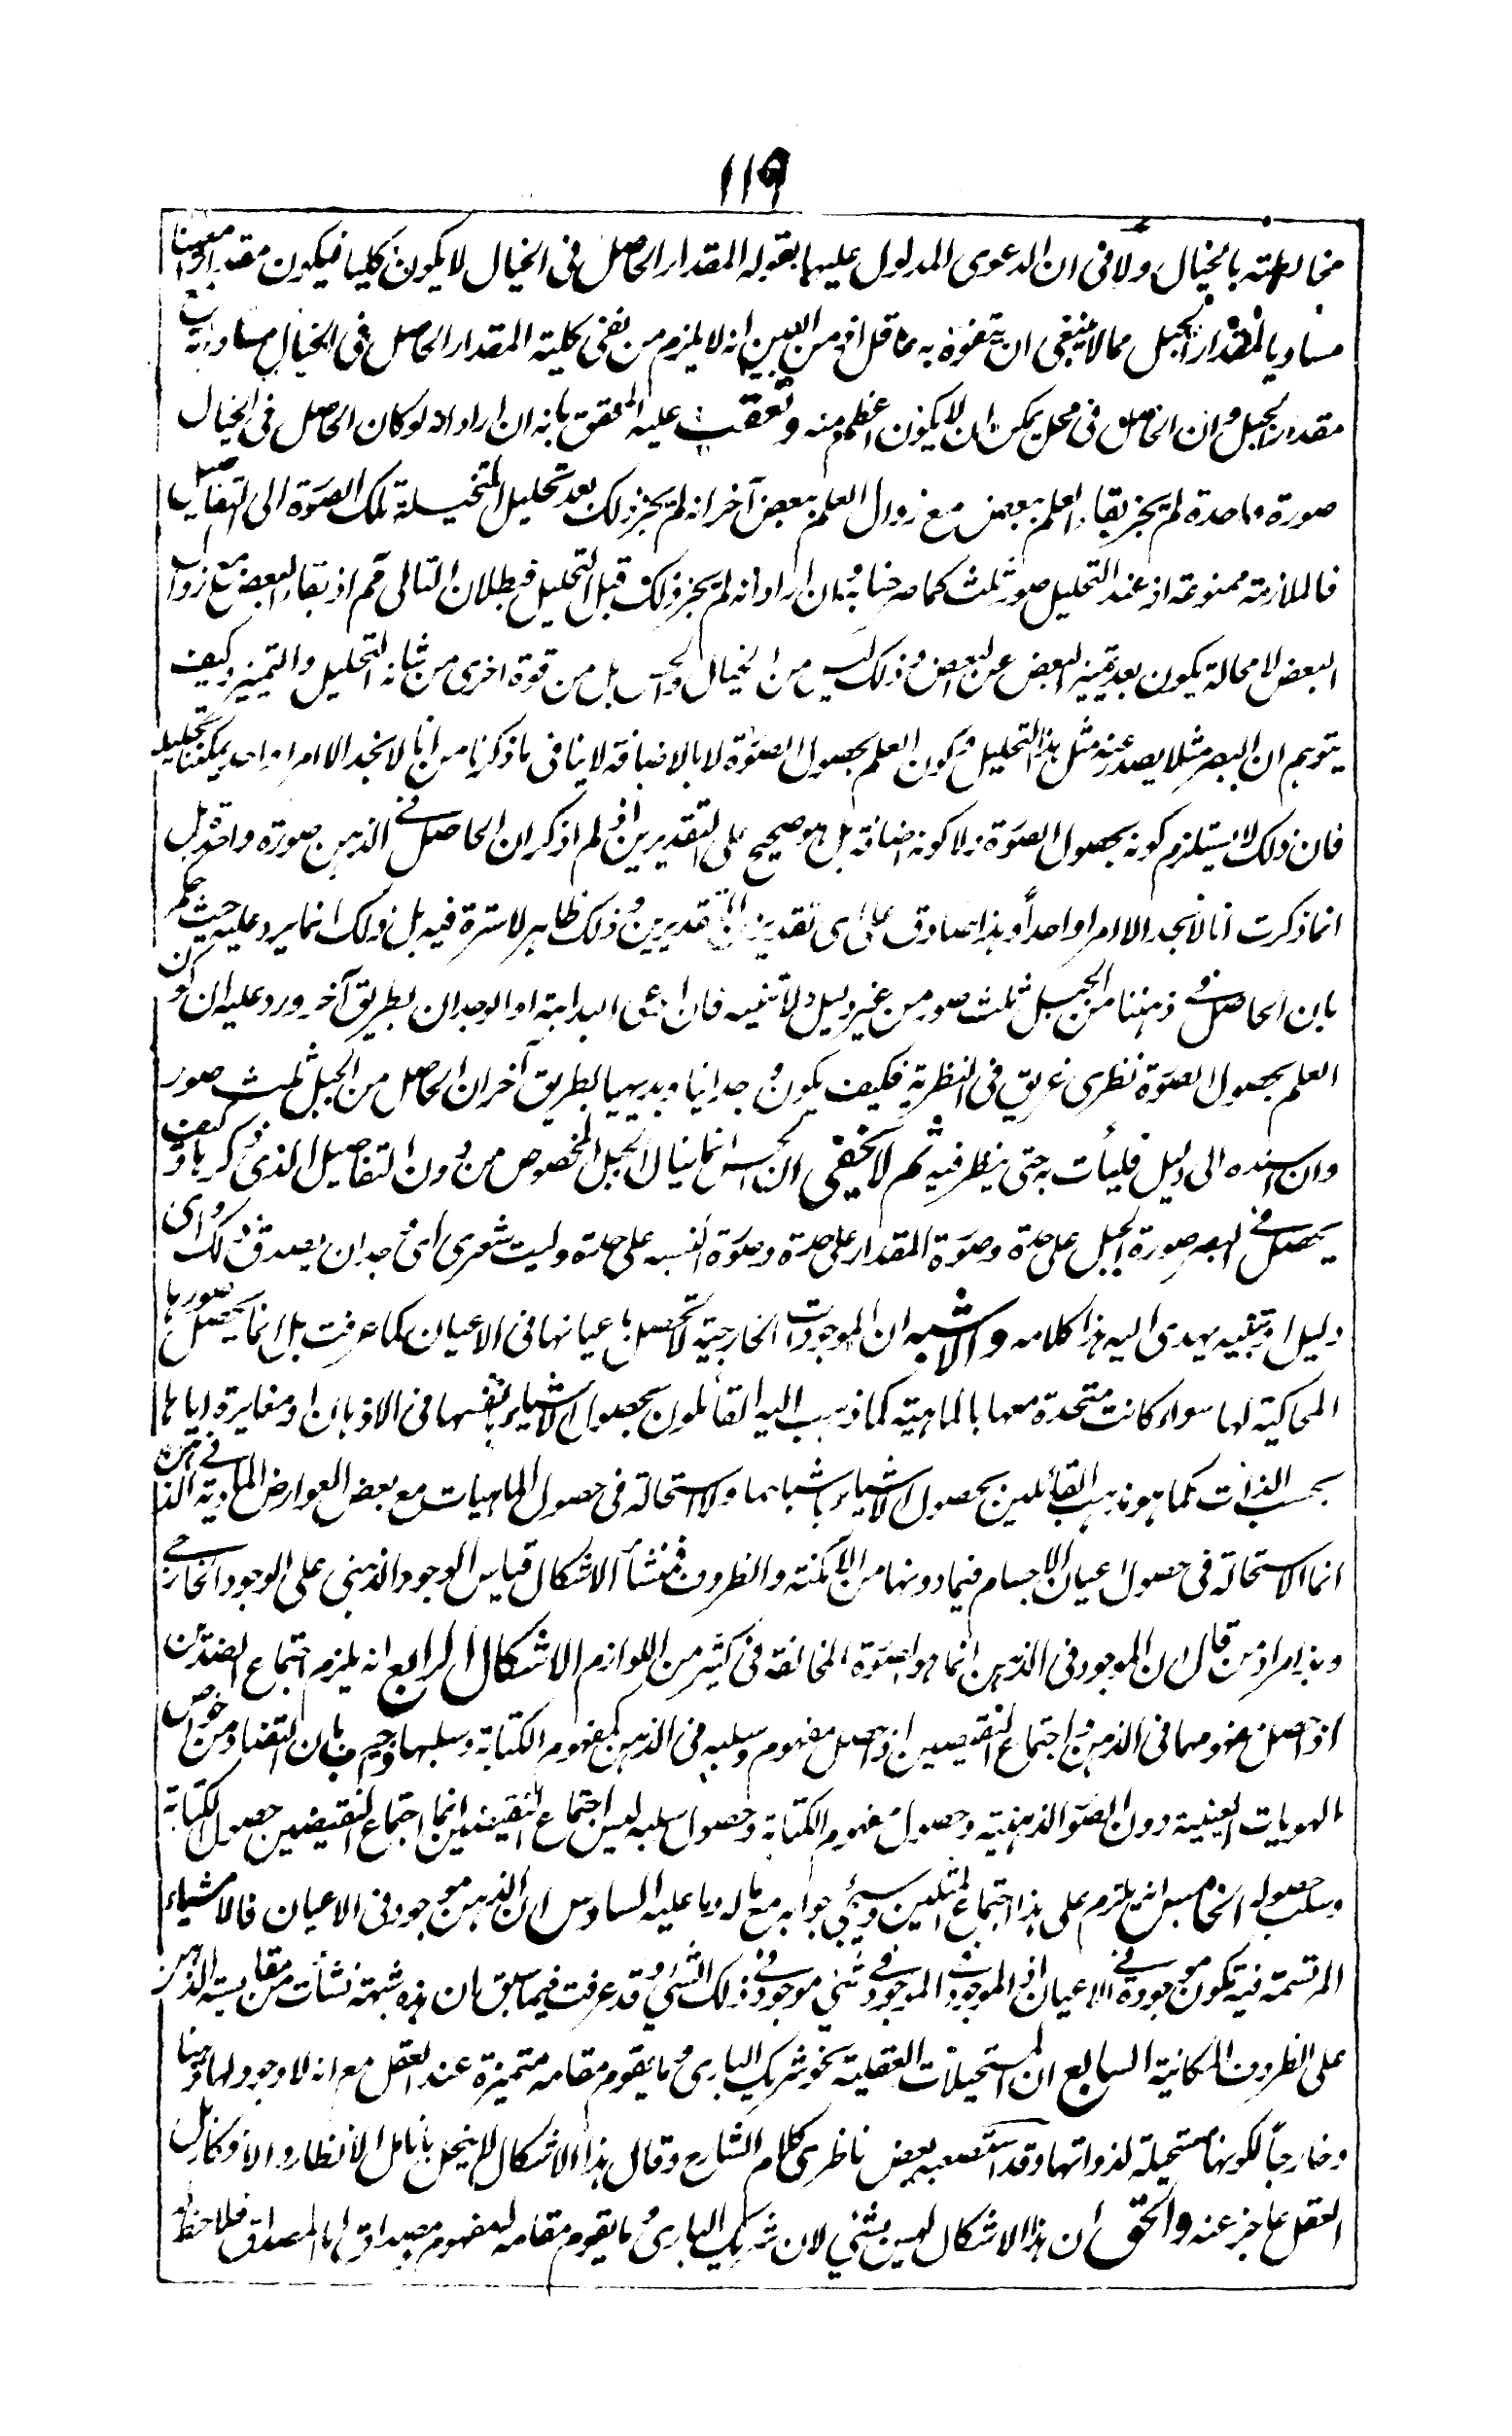 ١١٩
مخالطته بالخيال ولا في ان الدعوى المدلول عليها بقوله المقدار الحاصل في الخيال لا يكون كليا فيكون مقدارا معينا
مساويا لمقدار الجبل مما لا ينبغي ان يتفوه به عاقل اذ من البين انه لا يلزم من نفي كلية المقدار الحاصل في الخيال مساواته
مقدار الجبل وان الحاصل في محل يمكن ان لا يكون اعظم منه وتعقب عليه المحقق بانه ان اراد انه لو كان الحاصل في الخيال
صورة واحدة لم يجز بقاء العلم ببعض مع زوال العلم ببعض آخر انه لم يجز ذلك بعد تحليل المتخيلة تلك الصورة الى التفاصيل
فالملازمة ممنوعة اذ عند التحليل صور ثلث كما صرحنا به وان اراد انه لم يجز ذلك قبل التحليل فبطلان التالي مم اذ بقاء البعض مع زوال
البعض لا محالة يكون بعد تمييز البعض عن البعض وذلك ليس من الخيال والحس بل من قوة اخرى من شانه التحليل والتمييز وكيف
يتوهم ان البصر مثلا يصدر عنه مثل هذا التحليل وكون العلم بحصول الصورة لا بالاضافة لا ينافي ما ذكرنا من انا لا نجد الا امرا واحدا يمكننا تحليله
فان ذلك لا يستلزم كونه بحصول الصورة ولا كونه اضافة بل هو صحيح على التقديرين اذ لم اذكر ان الحاصل في الذهن صورة واحدة بل
انما ذكرت انا لا نجد الا امرا واحداً وهذا صادق على اي تقدير من التقديرين وذلك ظاهر لا سترة فيه بل ذلك انما يرد عليه حيث حكم
بان الحاصل في ذهننا من الجبل ثلث صور من غير دليل ولا تنبيه فان ادعى البداهة او الوجدان بطريق آخر ورد عليه ان كون
العلم بحصول الصورة نظري غريق في النظرية فكيف يكون وجدانيا وبديهيا بطريق آخر ان الحاصل من الجبل ثلث صور
وان اسنده الى دليل فليأت به حتى ينظر فيه ثم لا يخفى ان الحس انما ينال الجبل المخصوص من دون التفاصيل الذي ذكرها وكيف
يحصل في البصر صورة الجبل على حدة وصورة المقدار على حدة وصورة النسبه على حدة وليت شعري اي وجدان يصدق ذلك واي
دليل او تنبيه يهدي اليه هذا كلامه والاشبه ان الموجودات الخارجية لا تحصل باعيانها في الاعيان كما عرفت بل انما يحصل صورها
المحاكية لها سواء كانت متحدة معها بالماهية كما ذهب اليه القائلون بحصول الاشياء بانفسها في الاذهان او مغايرة اياها
بحسب الذات كما هو مذهب القائلين بحصول الاشياء باشباحها ولا استحالة في حصول الماهيات مع بعض العوارض المادية في الذهن
انما الاستحالة في حصول اعيان الاجسام فيما دونها من الامكنة والظروف فمنشأ الاشكال قياس الوجود الذهني على الوجود الخارجي
وهذا مراد من قال ان الموجود في الذهن انما هو الصورة المخالفة في كثير من اللوازم الاشكال الرابع انه يلزم اجتماع الضدين
اذا حصل مفهومهما في الذهن واجتماع النقيضين اذا حصل مفهوم وسلبه في الذهن كمفهوم الكتابة وسلبها واجيب بان التضاد من خواص
الهويات العينية دون الصور الذهنية وحصول مفهوم الكتابة وحصول سلبه ليس اجتماع النقيضين انما اجتماع النقيضين حصول الكتابة
وسلب حصوله الخامس انه يلزم على هذا اجتماع المثلين وسيجئ جوابه مع ما له وما عليه السادس ان الذهن موجود في الاعيان فالاشياء
المرتسمة فيه تكون موجودة في الاعيان اذ الموجود في الموجود في شئ موجود في ذلك الشئ وقد عرفت فيما سبق ان هذه شبهة نشأت من مقايسة الذهن
على الظروف المكانية السابع ان المستحيلات العقلية نحو شريك الباري وما يقوم مقامه متميزة عند العقل مع انه لا وجود لها ذهنا
وخارجاً لكونها مستحيلة لذواتها وقد استصعبه بعض ناظري كلام الشارح وقال هذا الاشكال لا ينحل بانامل الانظار والافكار بل
العقل عاجز عنه والحق ان هذا الاشكال ليس بشئ لان شريك الباري وما يقوم مقامه لمفهوم مصداق اما المصداق فلا حظ